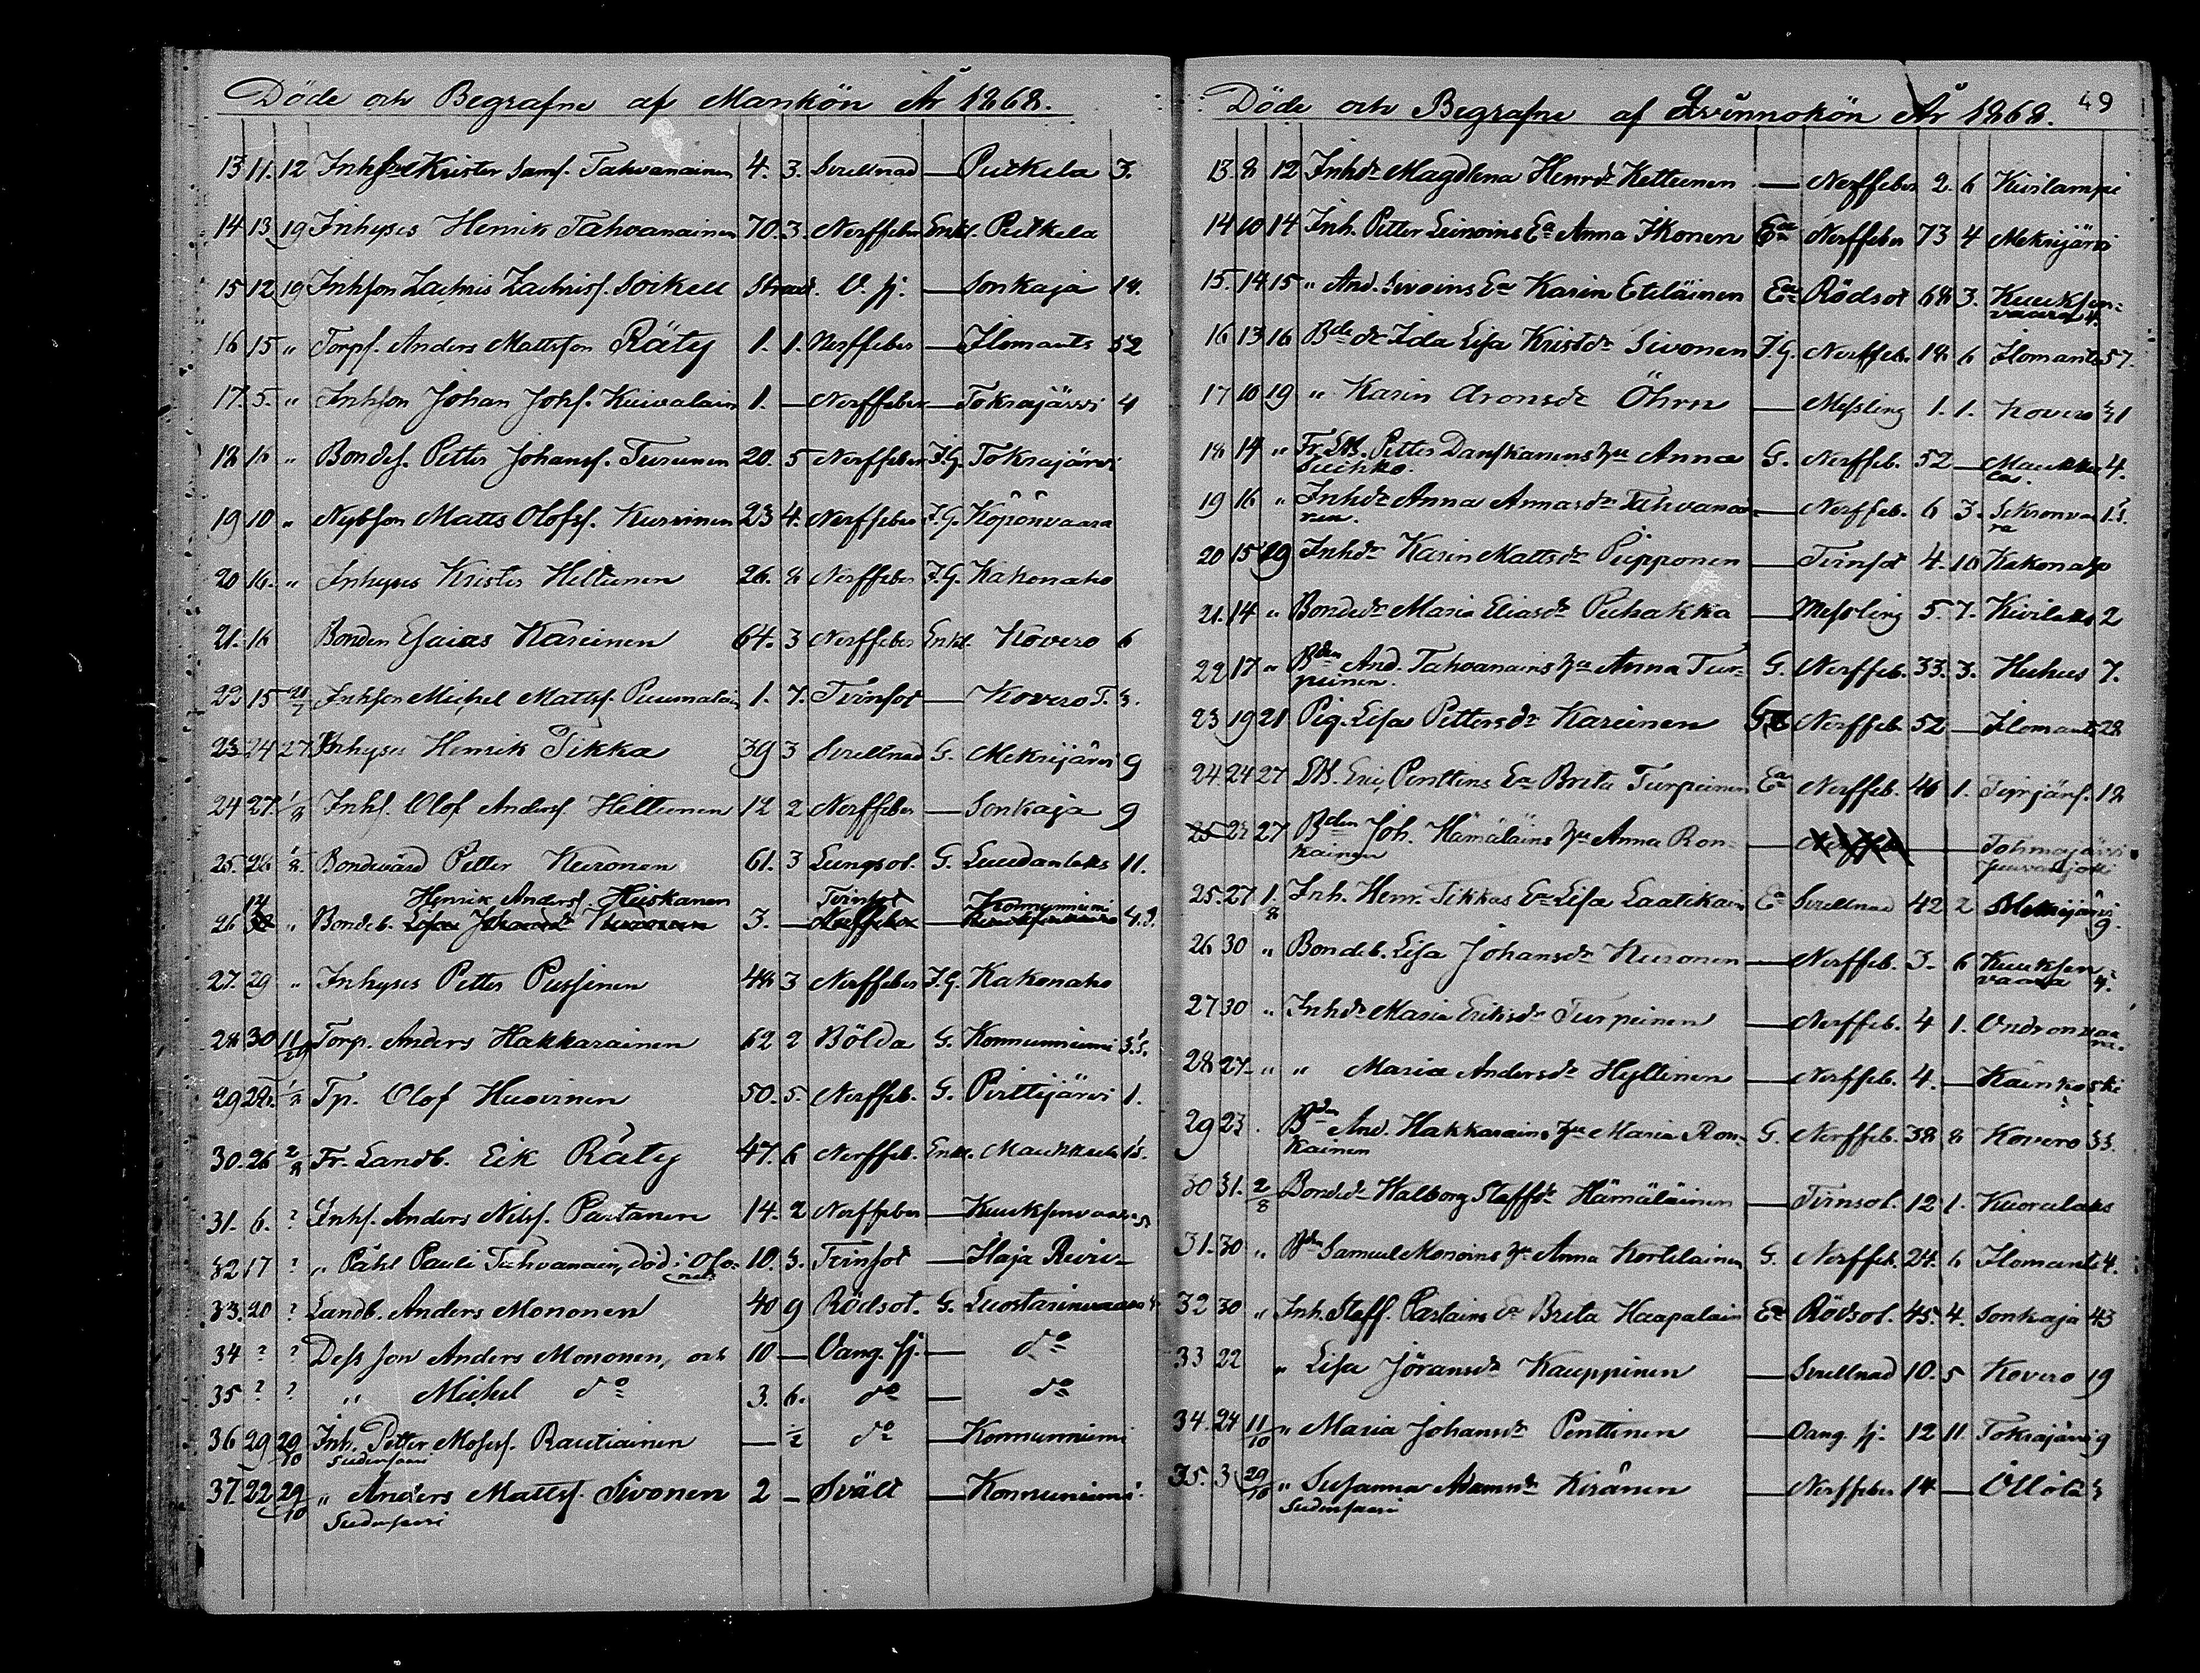 Döde och Begrafne af Mankön År 1868.
13 11. 12 Inhson Krister Sams. Tahvanainen 4. 3. Srellnad — Putkela 3.
14 13 19 Inhyses Henrik Tahvanainen 70. 3. Nerffeber Enkl. Putkela
15 12 19 Inhson Zachris Zachriss. Soikeli Straxt. O. sj. — Sonkaja 18.
16 15 " Torps. Anders Mattsson Räty 1. 1. Nerffeber — Ilomants 52
17. 5. " Inhson Johan Johs. Kuivalain 1. — Nerffeber — Tokrajärvi 4
18 16 " Bondes. Petter Johanss. Turunen 20. 5 Nerffeber J.G. Tokrajärvi
19 10 " Nybson Matts Olofss. Kurvinen 23 4. Nerffeber J.G. Köpönvaara
20 16. " Inhyses Krister Heltunen 26. 8 Nerffeber J.G. Kakonaho
21. 16 Bonden Esaias Kareinen 64. 3 Nerffeber Enkl. Kovero 6
22 15 21/7 Inhson Michel Matts. Puumalain 1. 7. Tvinsot — Kovero T. 3.
23 24 27 Inhyses Henrik Tikka 39 3 Srellnad G. Mekrijärvi 9
24 27. 1/8 Inhs. Olof Anders. Heltunen 12 2 Nerffeber — Sonkaja 9
25. 28. 1/8. Bondevärd Petter Kuronen 61. 3 Lungsot. G. Luudanlaks 11.
Henrik Anders. Heiskanen Tvinsot Konnunniemi
26 " Bondeb. Lisa Johansdr Kuronen 3. — Nerffeber — 4.
27. 29 " Inhyses Petter Pussinen 48 3 Nerffeber J.G. Kakonaho
28 30 11/10 Torp. Anders Hakkarainen 62 2 Bölda G. Konnunniemi
29 28. 1/8 Tp. Olof Huovinen 50. 5. Nerffeb. G. Pirttijärvi 1.
30. 26 2/8 Fr. Landb. Eik Räty 47. 6 Nerffeb. Enkl. Maukkula
31. 6. ? Inhs. Anders Nilss. Partanen 14. 2 Nerffeber — Kuuksenvaara
32 17 ? " Påhl Pauli Tahvanain, död i Olo- 10. 3. Tvinsot — Ilaja
nets
33. 20 ? Landb. Anders Mononen 40 9 Rödsot. G. Luostarinvaara
34 ? ? Dess son Anders Mononen, och 10 — Oang. sj. — do
35 ? ? " Michel do 3. 6. do — do
36 29 29/10 Inh. Petter Moses. Rautiainen — 1/2 do — Konnunniemi
Sudensaari
37. 22 29/10 " Anders Matts. Sivonen 2 — Svält — Konnunniemi
Sudensaari
49
Döde och Begrafne af Qvinnokön År 1868.
13. 8 12 Inhdr Magdlena Henrdr Kettunen — Nerffeber 2. 6 Kivilampi
14 10 14 Inh. Petter Leinoins Ea Anna Ikonen Ea Nerffeber 73 4 Mekrijärvi
15. 14 15 " And. Sivoins Ea Karin Eteläinen Ea Rödsot 68 3. Kuuksen-
vaara 4.
16 13 16 Bde dr Ida Lisa Kristdr Sivonen J.G. Nerffeb. 18. 6 Ilomants 57.
17 10 19 " Karin Aronsdr Öhrn — Messling 1. 1. Kovero 31
18 14 " Fr. LB. Petter Danskanens hu Anna G. Nerffeb. 52 — Maukku 4.
Suihko. la.
19 16 " Inhdr Anna Annasdr Tahvanai- — Nerffeb. 6 3.
nen. ra
20 15 19 Inhdr Karin Mattsdr Piipponen — Tvinsot 4. 10 Kakonaho
21. 14 " Bondedr Maria Eliasdr Puhakka — Messling 5. 7. Kivilaks 2
22 17 " Bden And. Tahvanains hu Anna Tur- G. Nerffeb. 33. 3. Huhus 7.
peinen.
23 19 21 Pig. Lisa Pettersdr Kareinen G Nerffeb. 52 — Ilomants 28
24. 24 27 LB. Eric Penttins Ea Brita Turpeinen Ea Nerffeb. 46 1. 18
25 23 27 Bden Joh. Hämäläins hu Anna Ron- — Nerffeb — Tohmajärvi
kainen
25. 27 1/8 Inh. Henr. Tikkas Ea Lisa Laatikain Ea Srellnad 42 2 Mekrijärvi
9.
26 30 " Bondeb. Lisa Johansdr Kuronen — Nerffeb. 3. 6 Kuuksen-
vaara 4.
27 30 " Inhdr Maria Eriksdr Turpeinen — Nerffeb. 4 1. Ondronvaa-
ra.
28 27. " " Maria Andersdr Hyttinen — Nerffeb. 4. — Kainkoski
29 23 . Bden And. Hakkarains hu Maria Ron- G. Nerffeb. 38 8 Kovero 33.
kainen
30 31. 2/8 Bondedr Walborg Staffdr Hämäläinen — Tvinsot. 12 1. Kuorelaks
31. 30 " Bden Samuel Monoins hu Anna Kortelainen G. Nerffeb. 24. 6 Ilomants 4.
32 30 " Inh. Staff. Partains Ea Brita Haapalain Ea Rödsot. 45. 4. Sonkaja 43
33 22 " Lisa Jöransdr Kauppinen — Srellnad 10. 5 Kovero 19
34. 24 11/10 " Maria Johansdr Penttinen — Oang. sj. 12 11. Tokrajärvi 9
35. 3 29/10 " Susanna Adamsdr Kiränen — Nerffeber 14 — Öllölä 3
Sudensaari